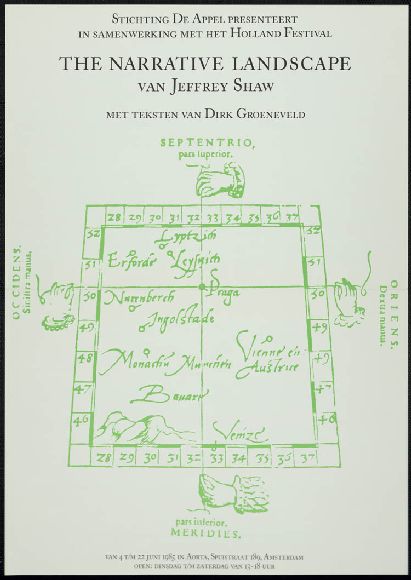 STICHTING DE APPEL PRESENTEERT
IN SAMENWERKING MET HET HOLLAND FESTIVAL
THE NARRATIVE LANDSCAPE
VAN JEFFREY SHAW
MET TEKSTEN VAN DIRK GROENEVELD
SEPTENTRIO,
pars superior.
28 29 30 31 32 33 34 35 36 37
52 52
Lyptzich
51 51
Erforde Leysnich
OCCIDENS.
Sinistra manus.
ORIENS.
Dextra manus.
50 Praga 50
Nurenberch
49 Ingolstade 49
48 Monachu Munchen
Vienne en
Austrice
47
Bavare
46 46
Venize
28 29 30 31 32 33 34 35 36 37
pars inferior.
MERIDIES.
VAN 4 T/M 22 JUNI 1985 IN AORTA, SPUISTRAAT 189, AMSTERDAM
OPEN: DINSDAG T/M ZATERDAG VAN 13-18 UUR